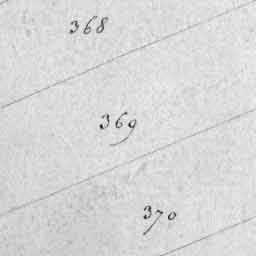 368
369
370